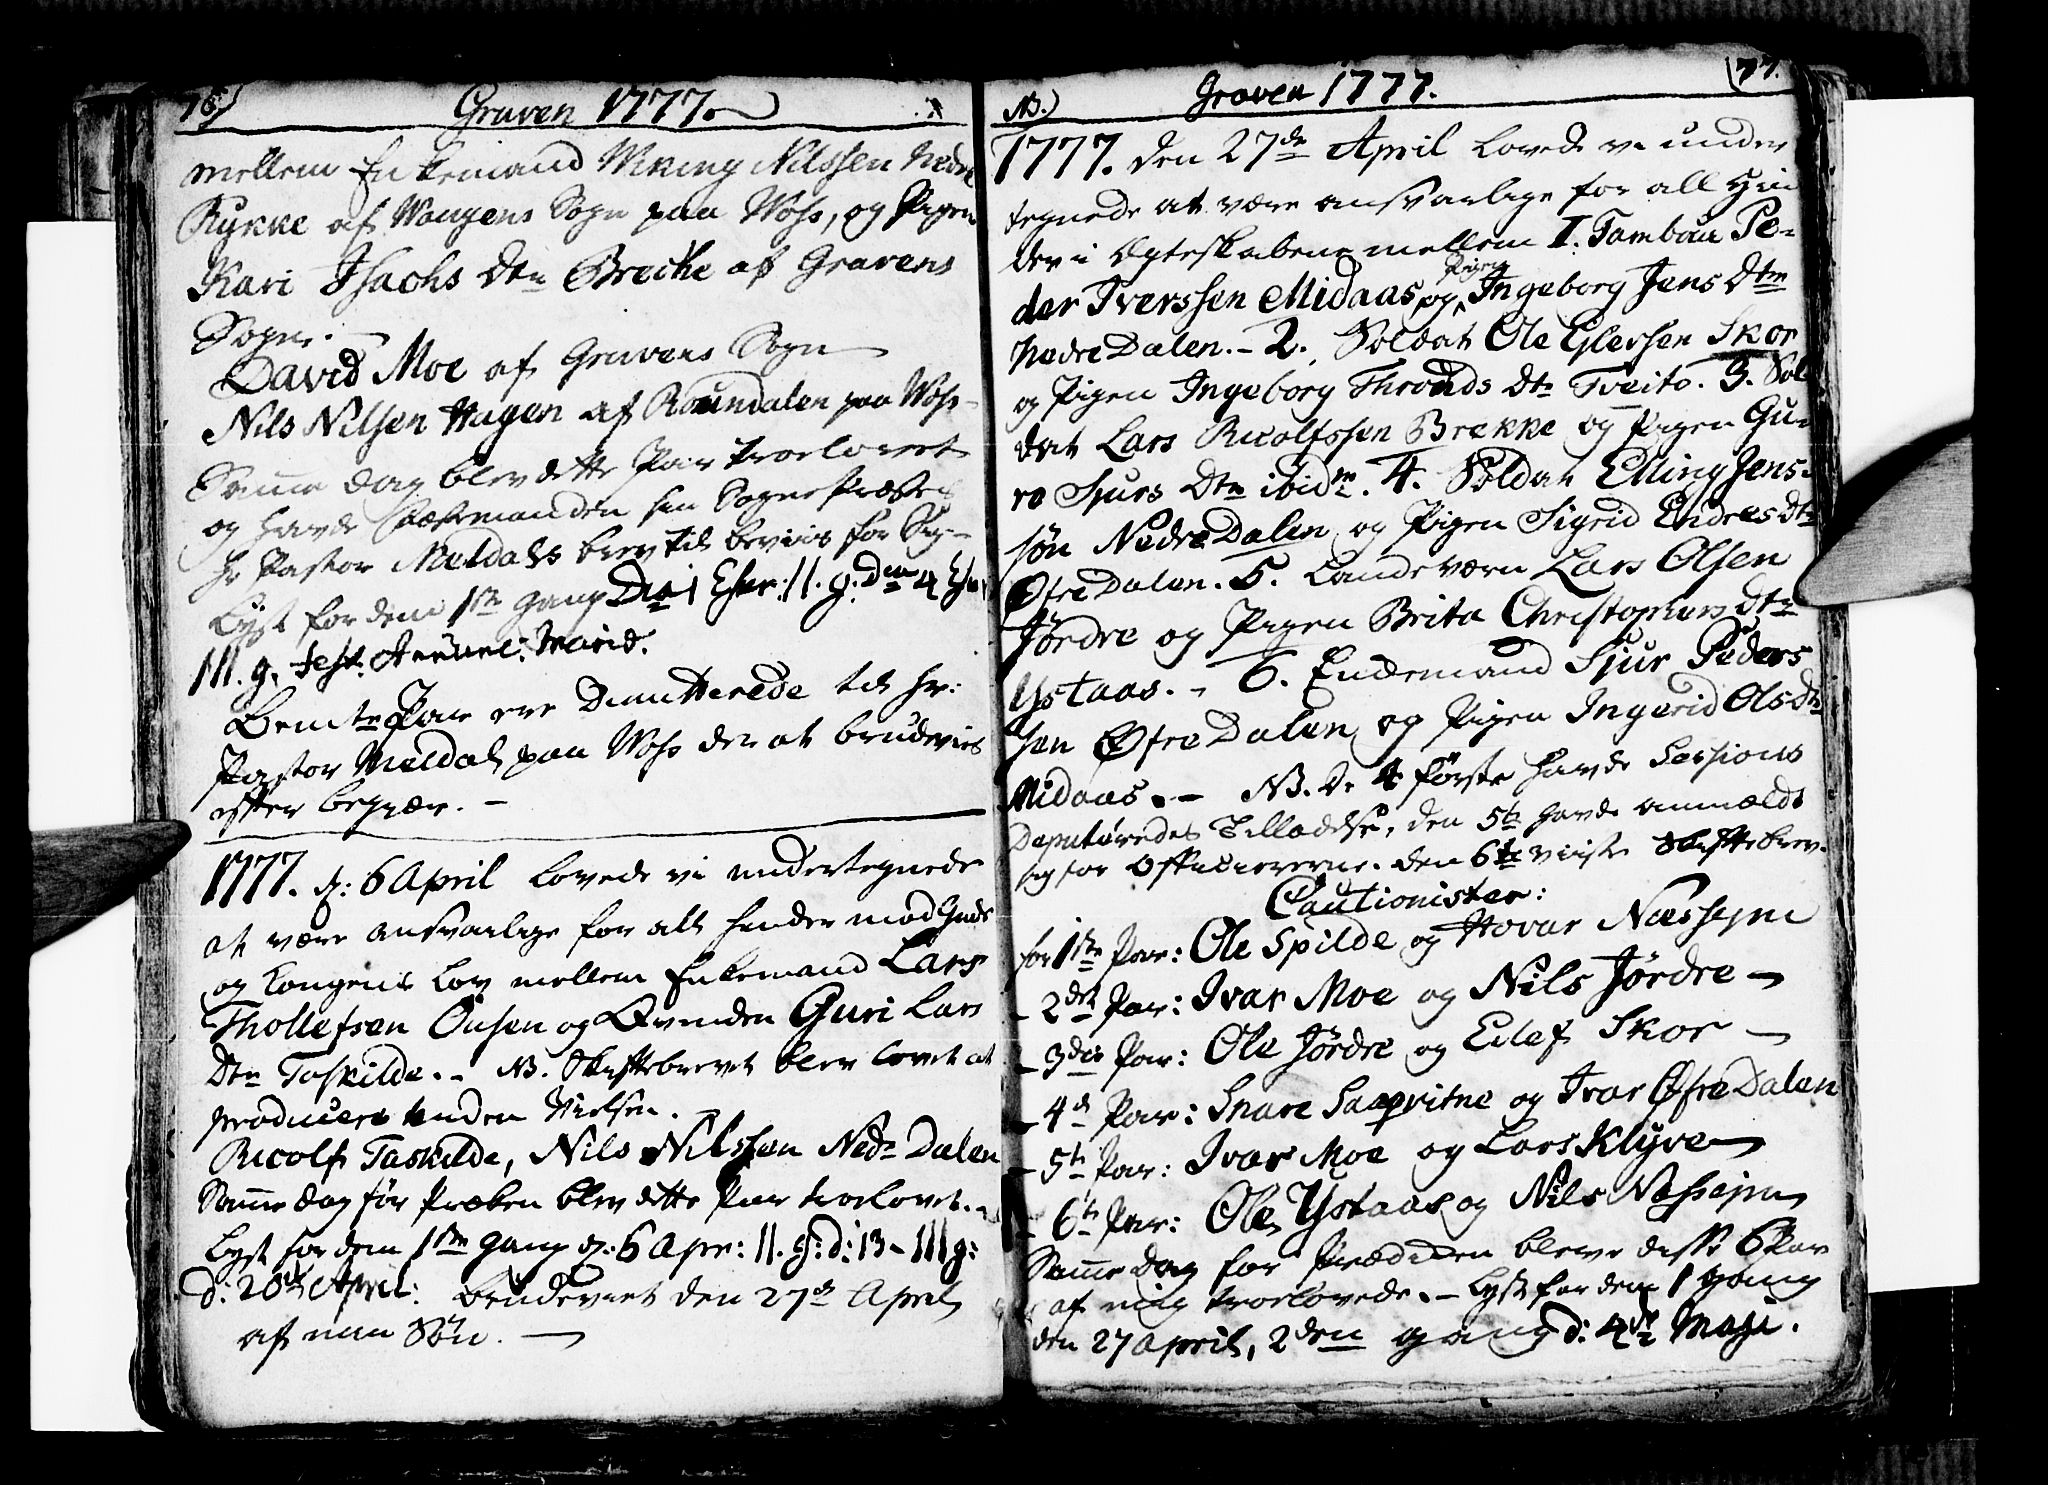 76)
Graven 1777.
mellem Enkemand Wiking Nilssen Nedre
Rykke af Wangens Sogn paa Woss, og Pigen
Kari Isachs Dtr Breche af Gravens
Sogn. -
David Moe af Gravens Sogn
Nils Nilsen Hagen af Raundalen paa Woss -
Samme Dag blev dette Par trolovet
og havde Fæstemanden sin Sognepræstes
Hr Pastor Meldals brev til beviis for Sig -
Lyst for dem 1ste gang Dca 1 Esur: II. g: Dca 4 Esur
III. g. Fest. Annunc: Mariæ.
Bemte Par ere Dimitterede til Hr:
Pastor Meldal paa Woss der at brudevies
efter begiær. -
1777. d: 6 April lovede vi undertegnede
at være ansvarlige for alt hinder mod Guds
og Kongens Lov mellem Enkemand Lars
Thollefsen Onsen og Qvinden Guri Lars
Dtr Taskilde. - NB. Skiftebrevet blev lovet at
produceres inden Vielsen.
Ricolf Taskilde, Nils Nilssen Nedr Dalen
Samme dag før Præken blev dette Par trolovet. -
Lyst for dem 1ste gang d: 6 Apr: II. g: d: 13 - III g:
d: 20de April: brudeviet den 27de April
af min Søn. -
NB.)
Graven 1777.
(77.
1777. Den 27de April lovede vi under
tegnede at være ansvarlige for all Hin
der i Ægteskabene mellem I. Tambour Pe-
der Iverssen Midaas, og Pigen Ingeborg Jens Dtr
Nedre Dalen. - 2. Soldat Ole Eilefsen Skor
og Pigen Ingeborg Thronds Dtr Tveito. 3. Sol
dat Lars Ricolfssen Brekke og Pigen Gu-
ro Sjurs Dtr ibidm. 4. Soldat Elling Jens-
søn Nedre Dalen og Pigen Sigrid Endres Dtr
Øfre Dalen. 5. Landeværn Lars Olsen
Jørdre og Pigen Brita Christophers Dtr
Ystaas. - 6. Enckemand Sjur Peders
sen Øfre Dalen og Pigen Ingerid Ols Dtr
Midaas. - NB. De 4 første havde Sessions
Deputeredes Tilladelse, den 5te havde anmældt
sig for Officiererne. den 6te viiste Skiftebrev.
Cautionister:
for 1ste Par: Ole Spilde og Hovar Næssejm
- 2det Par: Ivar Moe og Nils Jørdre -
- 3die Par: Ole Jørdre og Eilef Skor -
- 4d Par: Snare Saaqvitne og Ivar Øfre Dalen
- 5te Par: Ivar Moe og Lars Klyve
- 6te Par: Ole Ystaas og Nils Næssejm
Samme Dag for Prædiken bleve disse 6 Par
af mig trolovede. - Lyst for dem 1 gang
den 27 April, 2den gang d: 4de Maji.